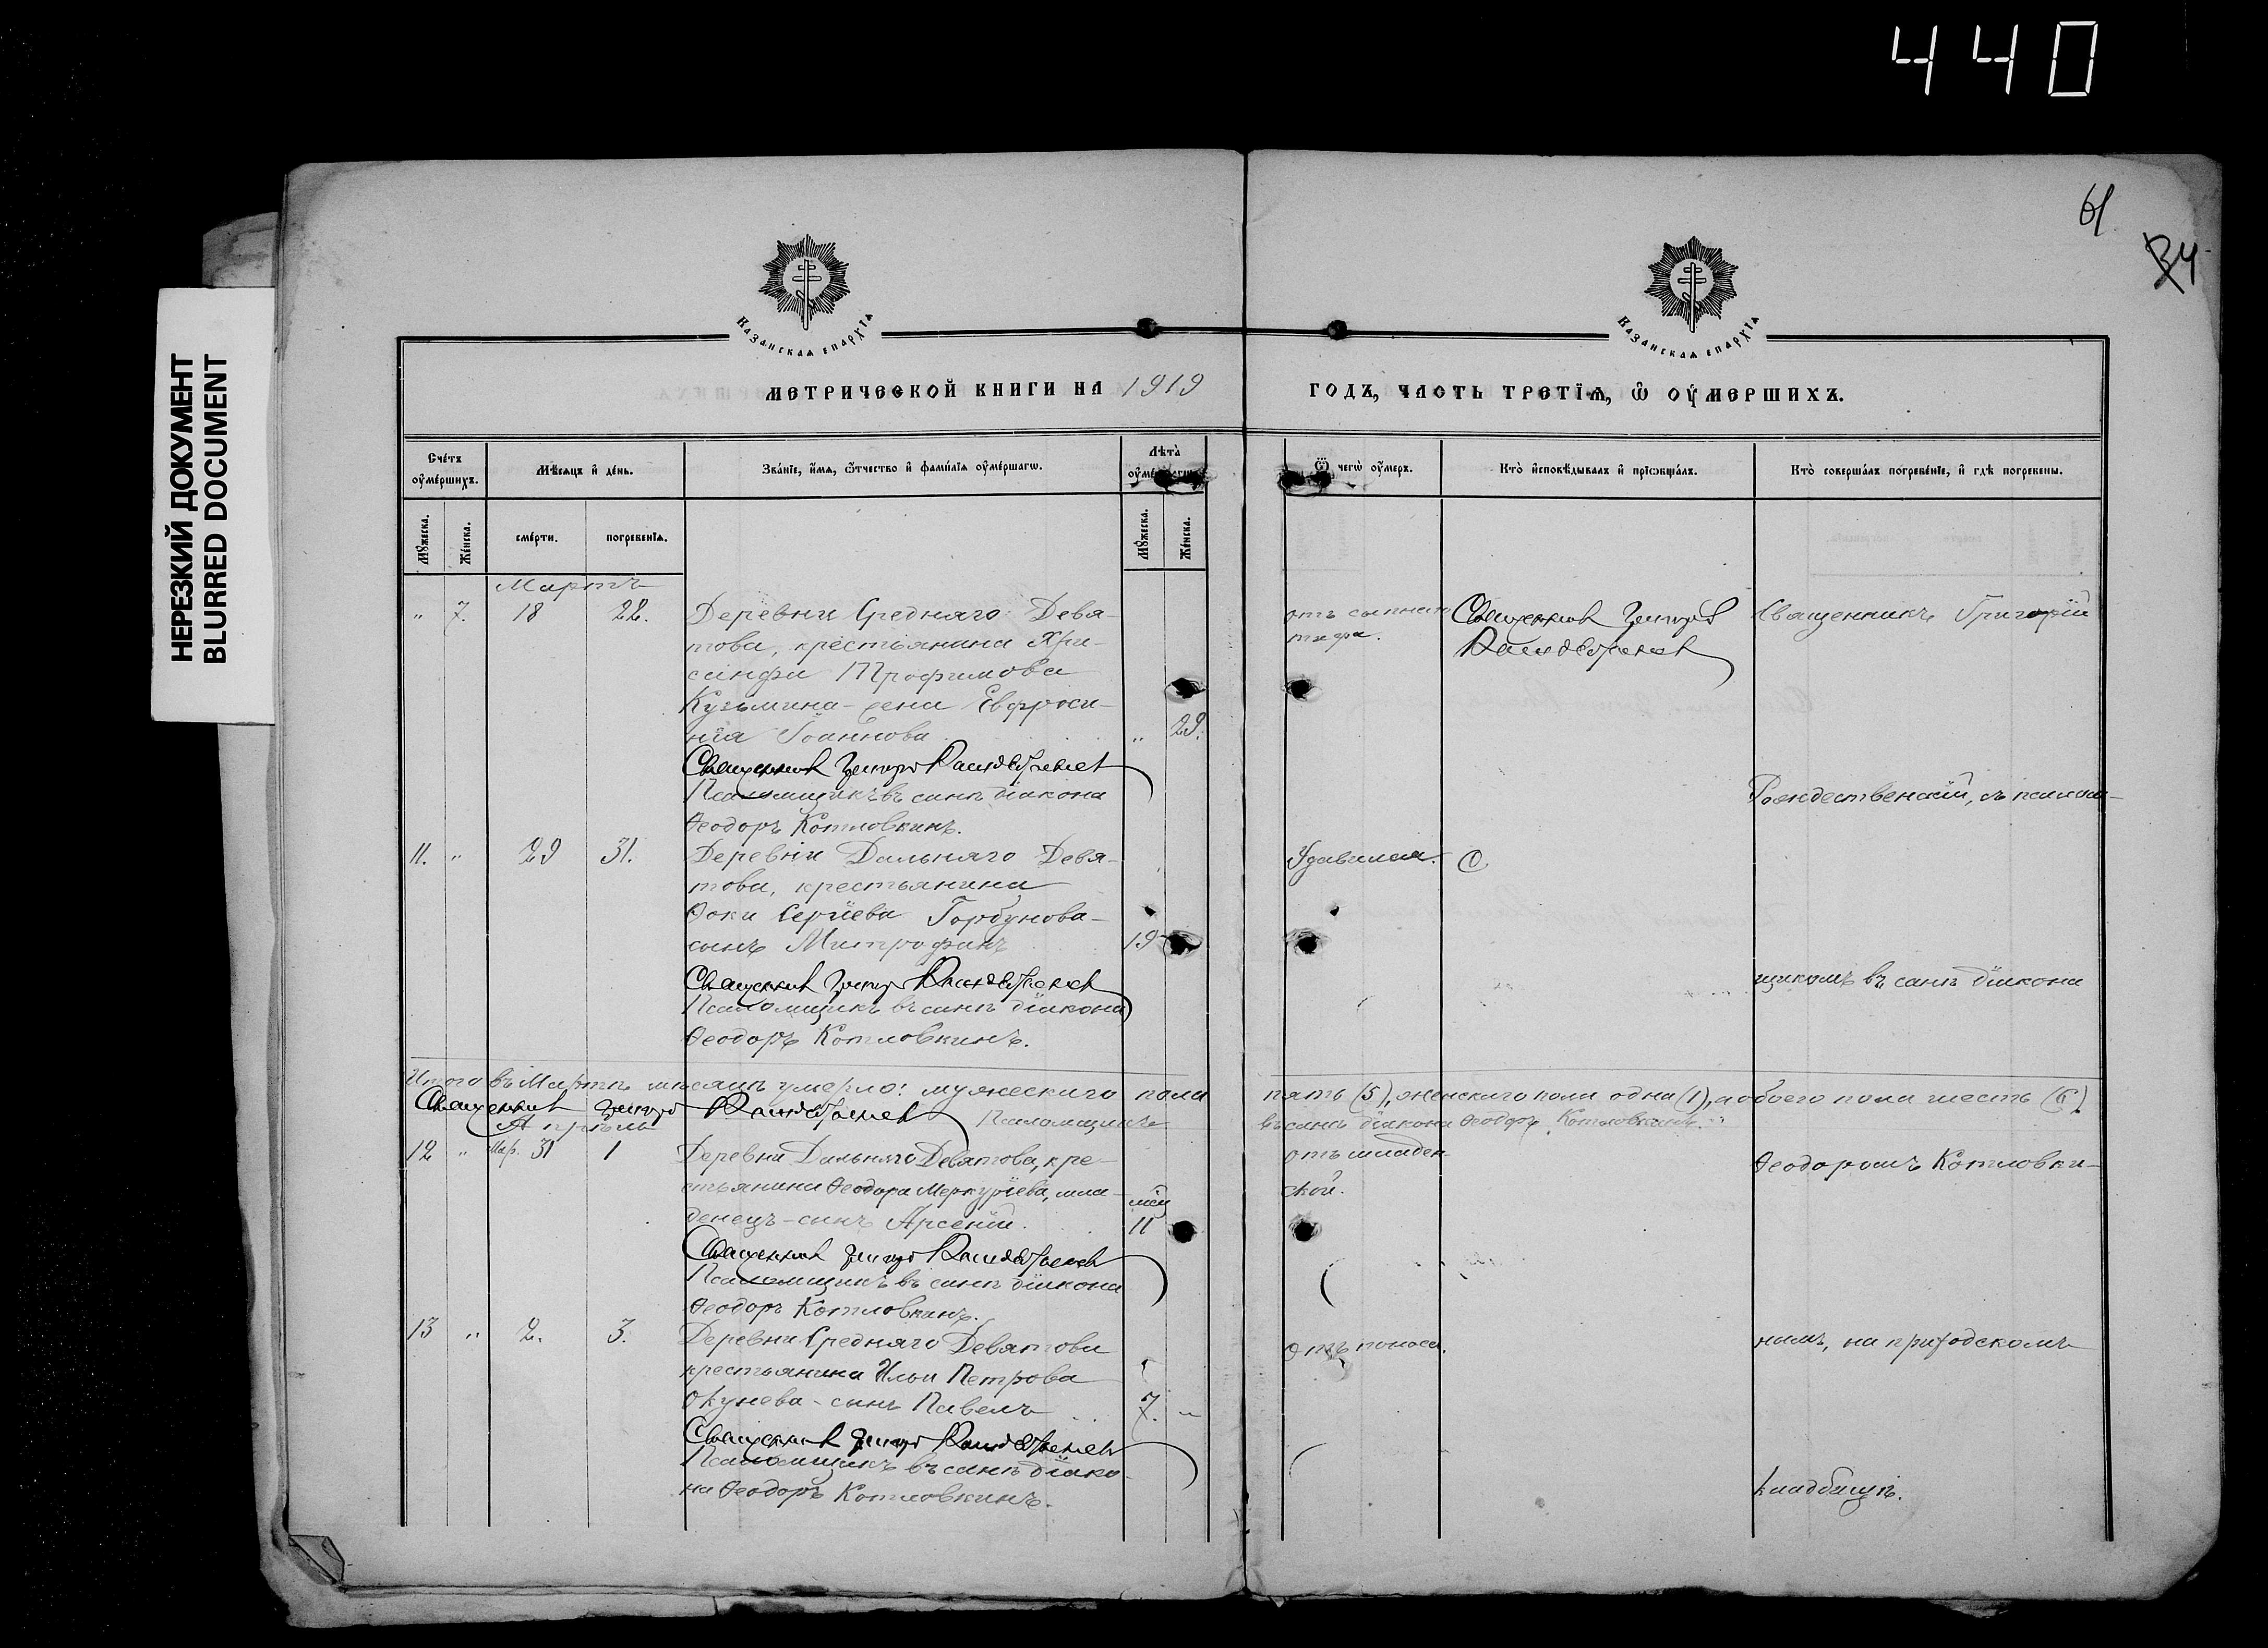 440
НЕРЕЗКИЙ ДОКУМЕНТ
BLURRED DOCUMENT
61
34
Казанская епархїѧ
Казанская епархїѧ
МЕТРИЧЕСКОЙ КНИГИ НА 1919
ГОДЪ, ЧАСТЬ ТРЕТЇѦ, Ѽ ОУМЕРШИХЪ.
Счетъ оумершихъ.
Мѣсяцъ и день.
Званіе, имѧ, ѿчество и фамилїѧ оумершагѡ.
Лѣта
Ѿ чегѡ оумеръ.
Кто исповѣдывалъ и прїѡбщалъ.
Кто совершалъ погребенїе, и гдѣ погребены.
Мужеска.
Женска.
смерти.
погребенїѧ.
Мужеска.
Женска.
Мартъ
" 7. 18 22. Деревни Средняго Девя-
това, крестьянина Хри-
санфа Трофимова
Кузьмина - жена Евфроси-
нія Іоаннова " 29.
Священникъ Григорій Рождественскій
Псаломщикъ въ санѣ діакона
Ѳеодоръ Котловкинъ.
отъ сыпнаго
тифа.
Священникъ Григорій
Рождественскій
Священникъ Григорій
Рождественскій, съ псалом-
11. " 29 31. Деревни Дальняго Девя-
това, крестьянина
Ѳоки Сергіева Горбунова -
сынъ Митрофанъ 19
Священникъ Григорій Рождественскій
Псаломщикъ въ санѣ діакона
Ѳеодоръ Котловкинъ.
Удавился.
щикомъ въ санѣ діакона
Итого въ Мартѣ мѣсяцѣ умерло: мужескаго пола пять (5), женскаго пола одна (1), а обоего пола шесть (6).
Священникъ Григорій Рождественскій Псаломщикъ въ санѣ діакона Ѳеодоръ Котловкинъ.
Апрѣль
12 " Мар. 31 1 Деревни Дальняго Девятова, кре-
стьянина Ѳеодора Меркуріева, мла-
денецъ - сынъ Арсеній. мѣц 11
Священникъ Григорій Рождественскій
Псаломщикъ въ санѣ діакона
Ѳеодоръ Котловкинъ.
отъ младен
ской.
Ѳеодоромъ Котловки-
13 " 2. 3. Деревни Средняго Девятова
крестьянина Ильи Петрова
Окунева - сынъ Павелъ 7. "
Священникъ Григорій Рождественскій
Псаломщикъ въ санѣ діако-
на Ѳеодоръ Котловкинъ.
Отъ поноса.
нымъ, на приходскомъ
кладбищѣ.